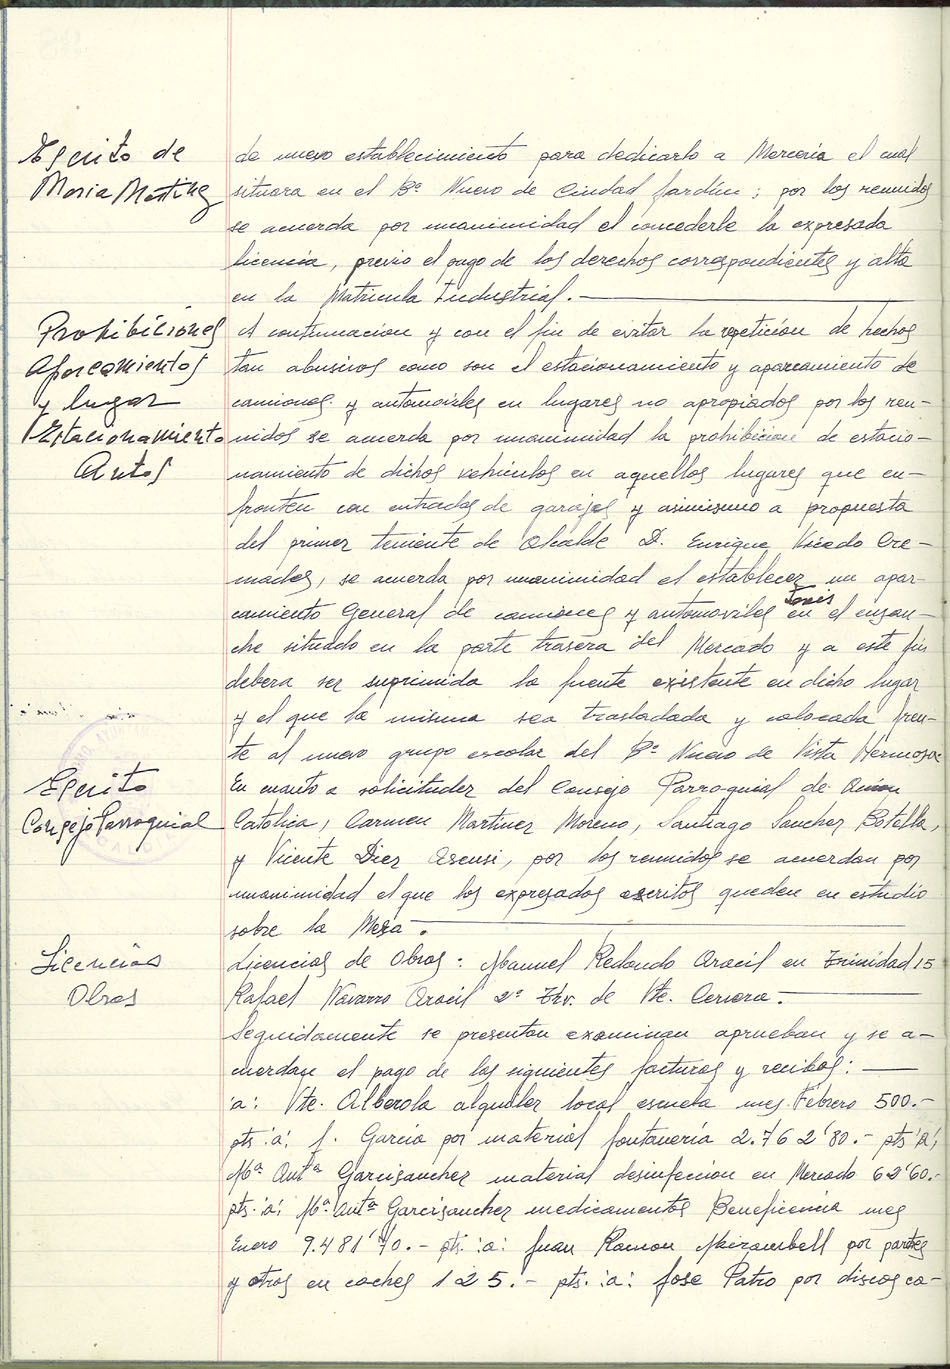 Escrito de
Maria Martinez
de nuevo establecimiento para dedicarlo a Merceria el cual
situara en el Bº Nuevo de Ciudad Jardin; por los reunidos
se acuerda por unanimidad el concederle la expresada
licencia, previo el pago de los derechos correspondientes y alta
en la Matricula Industrial.
Prohibiciones
Aparcamientos
y lugar
Estacionamiento
Autos
A continuacion y con el fin de evitar la repetición de hechos
tan abusivos como son el estacionamiento y aparcamiento de
camiones y automoviles en lugares no apropiados por los reu-
nidos se acuerda por unanimidad la prohibicion de estacio-
namiento de dichos vehiculos en aquellos lugares que en-
fronten con entradas de garajes y asimismo a propuesta
del primer teniente de Alcalde D. Enrique Vicedo Cre-
mades, se acuerda por unanimidad el establecer un apar-
camiento General de camiones y automoviles en el ensan-
che situado en la parte trasera del Mercado y a este fin
debera ser suprimida la fuente existente en dicho lugar
y el que la misma sea trasladada y colocada fren-
te al nuevo grupo escolar del Bº Nuevo de Vista Hermosa
Escrito
Consejo Parroquial
En cuanto a solicitudes del Consejo Parroquial de
Catolica, Carmen Martinez Moreno, Santiago Sanchez Botella,
y Vicente Diez Asensi, por los reunidos se acuerdan por
unanimidad el que los expresados escritos queden en estudio
sobre la Mesa.
Licencias
Obras
Licencias de Obras: Manuel Redondo Aracil en Trinidad 15
Rafael Navarro Aracil 2ª Trv. de Vte. Cervera.
Seguidamente se presentan examinan aprueban y se a-
cuerdan el pago de las siguientes facturas y recibos:
'a: Vte. Alberola alquiler local escuela mes Febrero 500.-
pts 'a: J. Garcia por material fontaneria 2.762'80.- pts 'a:
Mª Antª Garcisanchez material desinfeccion en Mercado 62'60.-
pts. 'a: Mª Antª Garcisanchez medicamentos Beneficencia mes
Enero 9.481'70.- pts. 'a: Juan Ramon Mirambell por partes
y otros en coches 125.- pts. 'a: Jose Patro por discos co-